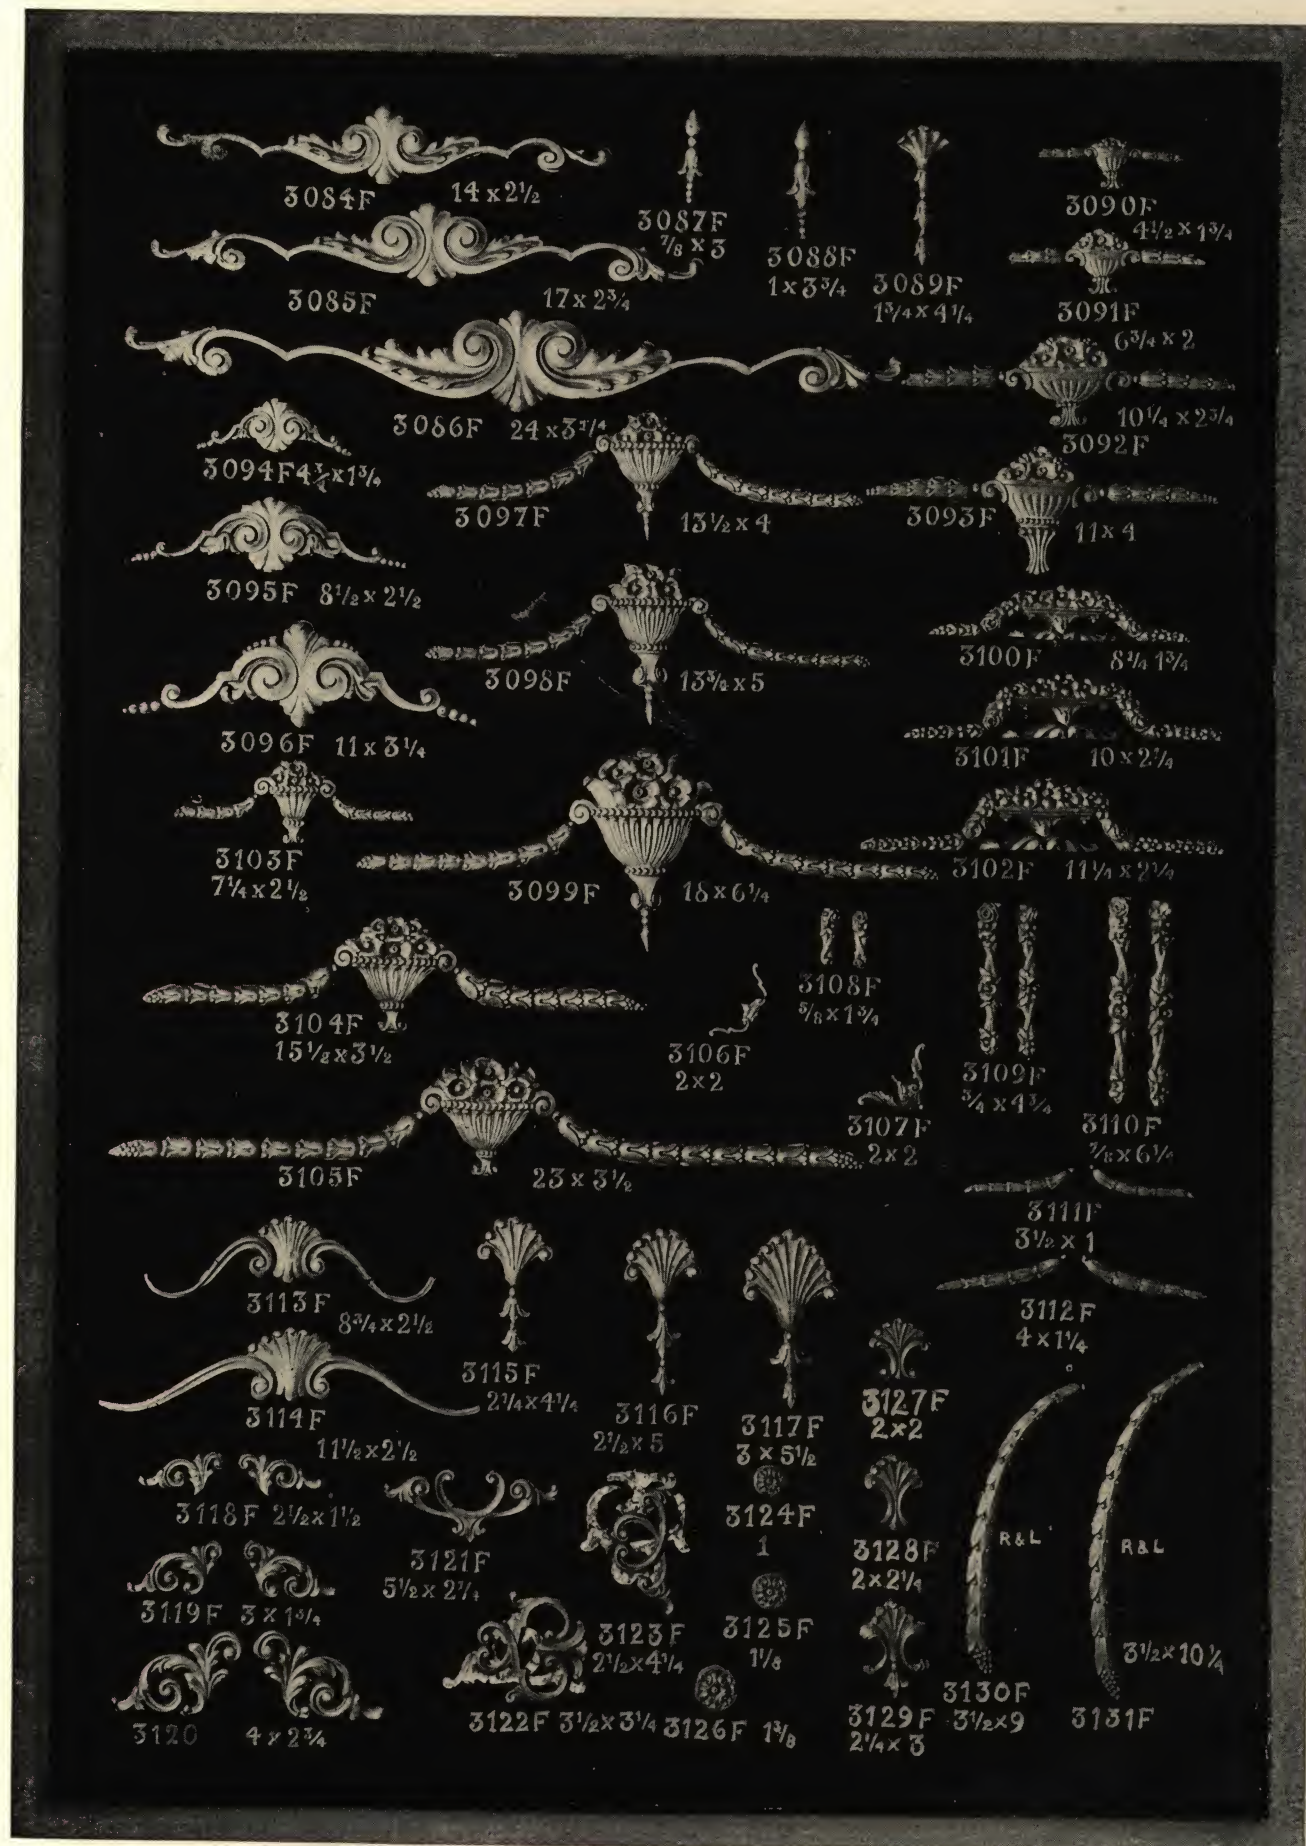 3084F 14 x 2½
3087F
⅞ x 3
3088F
1 x 3¾
3089F
1¾ x 4¼
3090F
4½ x 1¾
3085F 17 x 2¾
3091F
6¾ x 2
3086F 24 x 3¼
10¼ x 2¾
3092F
3094F 4¾ x 1¾
3097F 13½ x 4
3093F 11 x 4
3095F 8½ x 2½
3098F 13¾ x 5
3100F 8¼ 1¾
3096F 11 x 3¼
3101F 10 x 2¼
3103F
7¼ x 2½
3099F 18 x 6¼
3102F 11¼ x 2¼
3104F
15½ x 3½
3108F
⅝ x 1¾
3106F
2 x 2
3109F
¾ x 4¾
3107F
2 x 2
3110F
⅞ x 6¼
3105F 23 x 3½
3111F
3½ x 1
3113F
8¾ x 2½
3112F
4 x 1¼
3115F
2¼ x 4¼
3114F
11½ x 2½
3116F
2½ x 5
3117F
3 x 5½
3127F
2 x 2
3118F 2½ x 1½
3121F
5½ x 2¼
3124F
1
3128F
2 x 2¼
R & L
R & L
3119F 3 x 1¾
3123F
2½ x 4¼
3125F
1⅛
3120 4 x 2¾
3122F 3½ x 3¼
3126F 1⅜
3129F
2¼ x 3
3130F
3½ x 9
3½ x 10¼
3131F